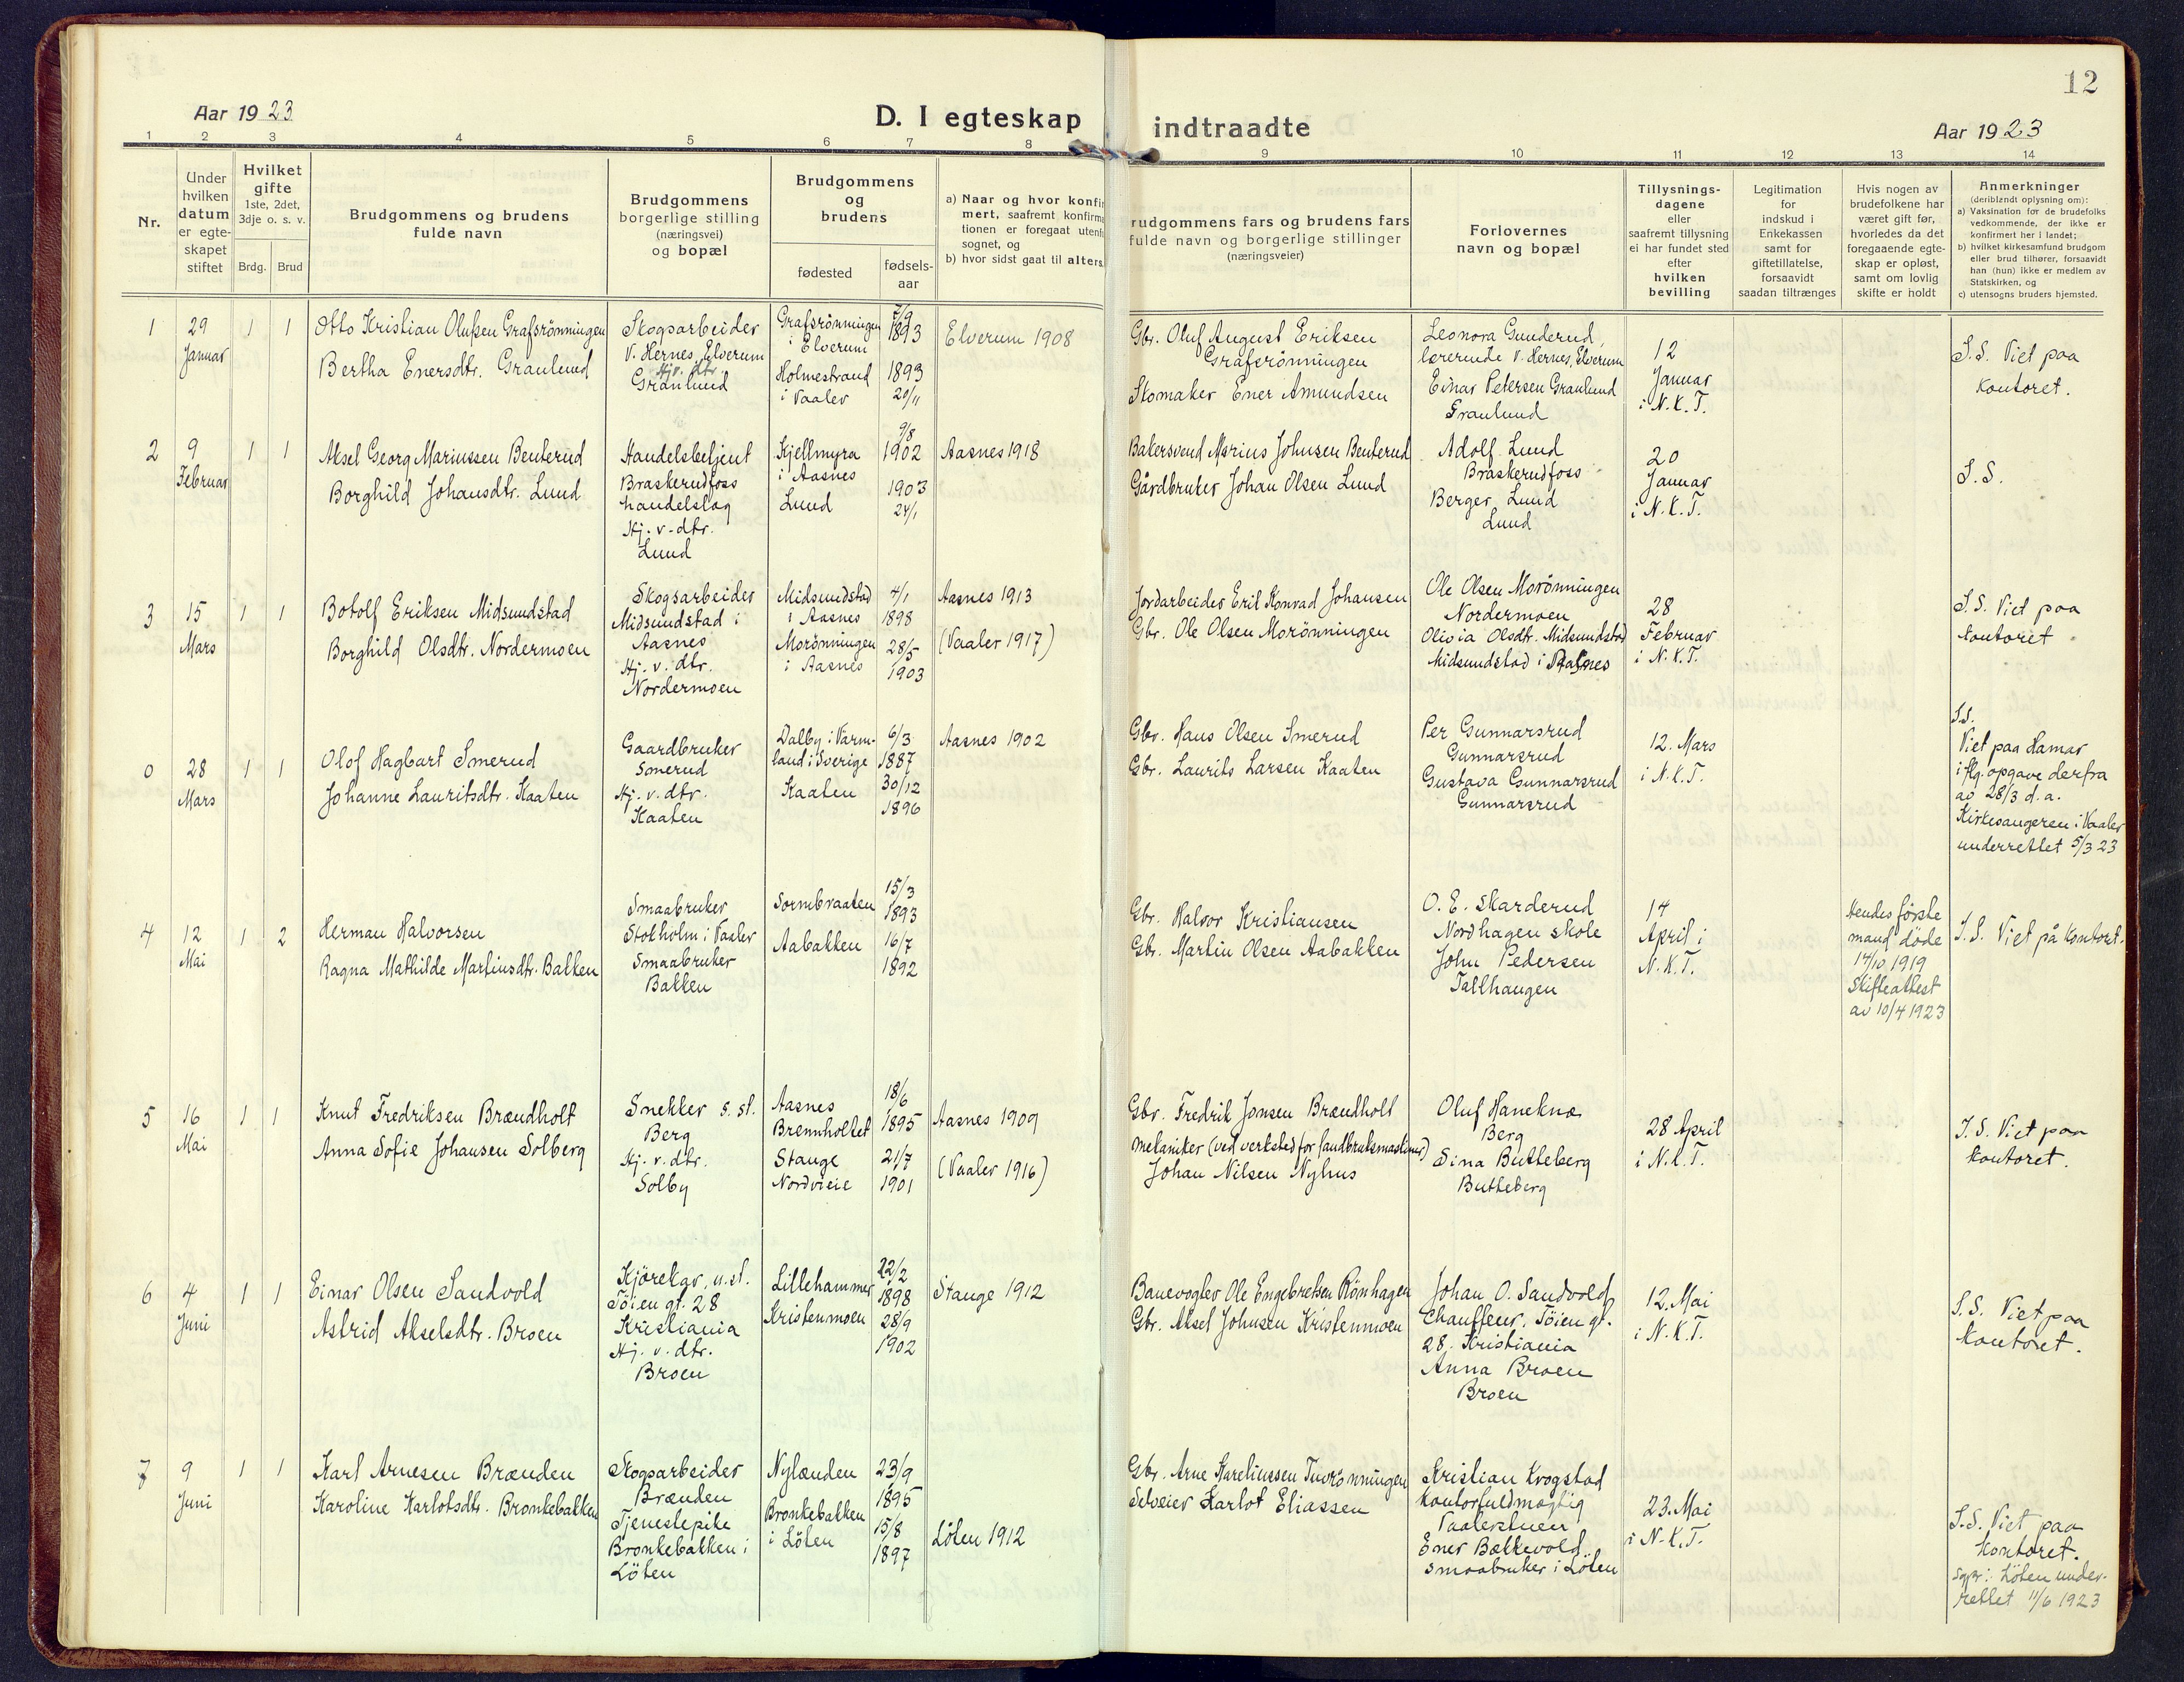 12
Aar 1923
D. I egteskap
indtraadte
Aar 1923
1 2 3 4 5 6 7 8 9 10 11 12 13 14
Nr.
Under
hvilken
datum
er egte-
skapet
stiftet
Hvilket
gifte
1ste, 2det,
3dje o. s. v.
Brdg. Brud
Brudgommens og brudens
fulde navn
Brudgommens
borgerlige stilling
(næringsvei)
og bopæl
Brudgommens
og
brudens
fødested
fødsels-
aar
a) Naar og hvor konfir
mert, saafremt konfirma
tionen er foregaat utenfo
sognet, og
b) hvor sidst gaat til alters.
rudgommens fars og brudens fars
fulde navn og borgerlige stillinger
(næringsveier)
Forlovernes
navn og bopæl
Tillysnings-
dagene
eller
saafremt tillysning
ei har fundet sted
efter
hvilken
bevilling
Legitimation
for
indskud i
Enkekassen
samt for
giftetillatelse,
forsaavidt
saadan tiltrænges
Hvis nogen av
brudefolkene har
været gift før,
hvorledes da det
foregaaende egte-
skap er opløst,
samt om lovlig
skifte er holdt
Anmerkninger
(deriblendt oplysning om):
a) Vaksination for de brudefolks
vedkommende, der ikke er
konfirmert her i landet;
b) hvilket kirkesamfund brudgom
eller brud tilhører, forsaavidt
han (hun) ikke er medlem av
Statskirken, og
c) utensogns bruders hjemsted.
1
29
Januar
1 1
Otto Kristian Olufsen Grafsrönningen
Bertha Enersdtr. Granlund
Skogsarbeider
V. Hernes, Elverum
Hjv. dtr.
Granlund
Grafsrönningen
i Elverum
Holmestrand
i Vaaler
7/9
1893
1893
20/11
Elverum 1908
Gbr. Oluf August Eriksen
Grafsrönningen
Skomaker Ener Amundsen
Leonora Gunderud,
lærerinde V. Hernes, Elverum
Einar Petersen Granlund
Granlund
12
Januar
i N.K.T.
S.S. Viet paa
kontoret.
2
9
Februar
1 1
Aksel Georg Mariussen Benterud
Borghild Johansdtr. Lund
Handelsbetjent
Braskerudfoss
handelslag
Hj. v. dtr.
Lund
Kjellmyra
i Aasnes
Lund
9/8
1902
1903
24/1
Aasnes 1918
Bakersvend Marius Johnsen Benterud
Gårdbruker Johan Olsen Lund
Adolf Lund
Braskerudfoss
Berger Lund
Lund
20
Januar
i N.K.T.
S.S.
3
15
Mars
1 1
Botolf Eriksen Midsundstad
Borghild Olsdtr. Nordermoen
Skogsarbeider
Midsundstad i
Aasnes
Hj. v. dtr.
Nordermoen
Midsundstad
i Aasnes
Morönningen
i Aasnes
4/1
1898
28/5
1903
Aasnes 1913
(Vaaler 1917)
Jordarbeider Erik Konrad Johansen
Gbr. Ole Olsen Morönningen
Ole Olsen Morönningen
Nordermoen
Olivia Olsdt. Midsundstad
Midsundstad i Aasnes
28
Februar
i N.K.T.
S.S. Viet paa
kontoret
0
28
Mars
1 1
Olof Hagbart Smerud
Johanne Lauritsdtr. Kaaten
Gaardbruker
Smerud
Hj. v. dtr.
Kaaten
Dalby i Värm-
land i Sverige
Kaaten
6/3
1887
30/12
1896
Aasnes 1902
Gbr. Hans Olsen Smerud
Gbr. Laurits Larsen Kaaten
Per Gunnarsrud
Gunnarsrud
Gustava Gunnarsrud
Gunnarsrud
12. Mars
i N.K.T.
S.S.
Viet paa Hamar
iflg. opgave derfra
av 28/3 d.a.
Kirkesangeren i Vaaler
underrettet 5/3 23
4
12
Mai
1 2
Herman Halvorsen
Ragna Mathilde Martinsdtr. Bakken
Smaabruker
Stokholm i Vaaler
Smaabruker
Bakken
Sormbraaten
Aabakken
15/3
1893
16/7
1892
Gbr. Halvor Kristiansen
Gbr. Martin Olsen Aabakken
O. E. Skarderud
Nordhagen skole
John Pedersen
Tallhaugen
14
April i
N.K.T.
Hendes förste
mand döde
14/10 1919
Skifteattest
av 10/4 1923
S.S. Viet på kontoret.
5
16
Mai
1 1
Knut Fredriksen Brændholt
Anna Sofie Johansen Solberg
Snekker s. st.
Berg
Hj. v. dtr.
Solby
Aasnes
Brennholtet
Stange
Nordvieie
18/6
1895
21/7
1901
Aasnes 1909
(Vaaler 1916)
Gbr. Fredrik Jonsen Brændholt
Mekaniker (ved verksted for landbruksmaskiner)
Johan Nilsen Nyhus
Oluf Haneknæ
Berg
Sina Butteberg
Butteberg
28 April
i N.K.T.
S.S. Viet paa
kontoret.
6
4
Juni
1 1
Einar Olsen Sandvold
Astrid Akselsdtr. Broen
Kjörekar, u. st.
Töien gt. 28
Kristiania
Hj. v. dtr.
Broen
Lillehammer
Kristenmoen
22/2
1898
28/9
1902
Stange 1912
Banevogter Ole Engebretsen Rönhagen
Gbr. Aksel Johnsen Kristenmoen
Johan O. Sandvold,
Chauffeur, Töien gt.
28. Kristiania
Anna Broen
Broen
12. Mai
i N.K.T.
S.S. Viet paa
kontoret.
7
9
Juni
1 1
Karl Arnesen Brænden
Karoline Karlotsdtr. Bronkebakken
Skogsarbeider
Brænden
Tjenestepike
Bronkebakken i
Löten
Nylænden
Bronkebakken
i Löten
23/9
1895
15/8
1897
Löten 1912
Gbr. Arne Kareliussen Tuvrönningen
Selveier Karlot Eliassen
Kristian Krogstad
Kontorfuldmægtig
Vaalerstuen
Ener Bækkevold
smaabruker i Löten
23. Mai
i N.K.T.
S.S. Viet paa
Kontoret.
Sgpr. i Löten under-
rettet 11/6 1923